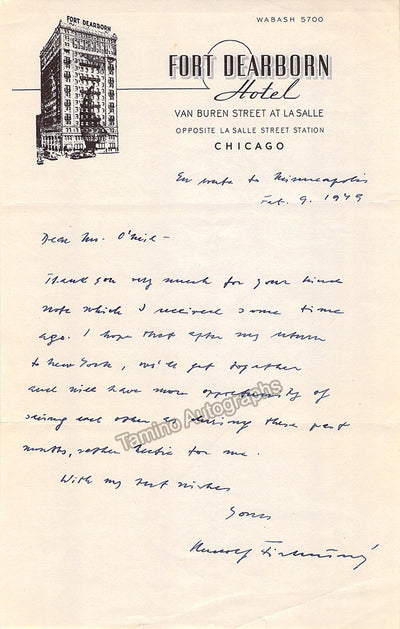 FORT DEARBORN
WABASH 5700
FORT DEARBORN
Hotel
VAN BUREN STREET AT LA SALLE
OPPOSITE LA SALLE STREET STATION
CHICAGO
En route to Minneapolis
Feb. 9. 1949
Dear Mr. O'Neil -
Thank you very much for your kind
note which I received some time
ago. I hope that after my return
to New York, we'll get together
and will have more opportunity of
seeing each other, as during these past
months, rather hectic for me.
With my best wishes
Yours
Rudolf Firkušný
Tamino Autographs